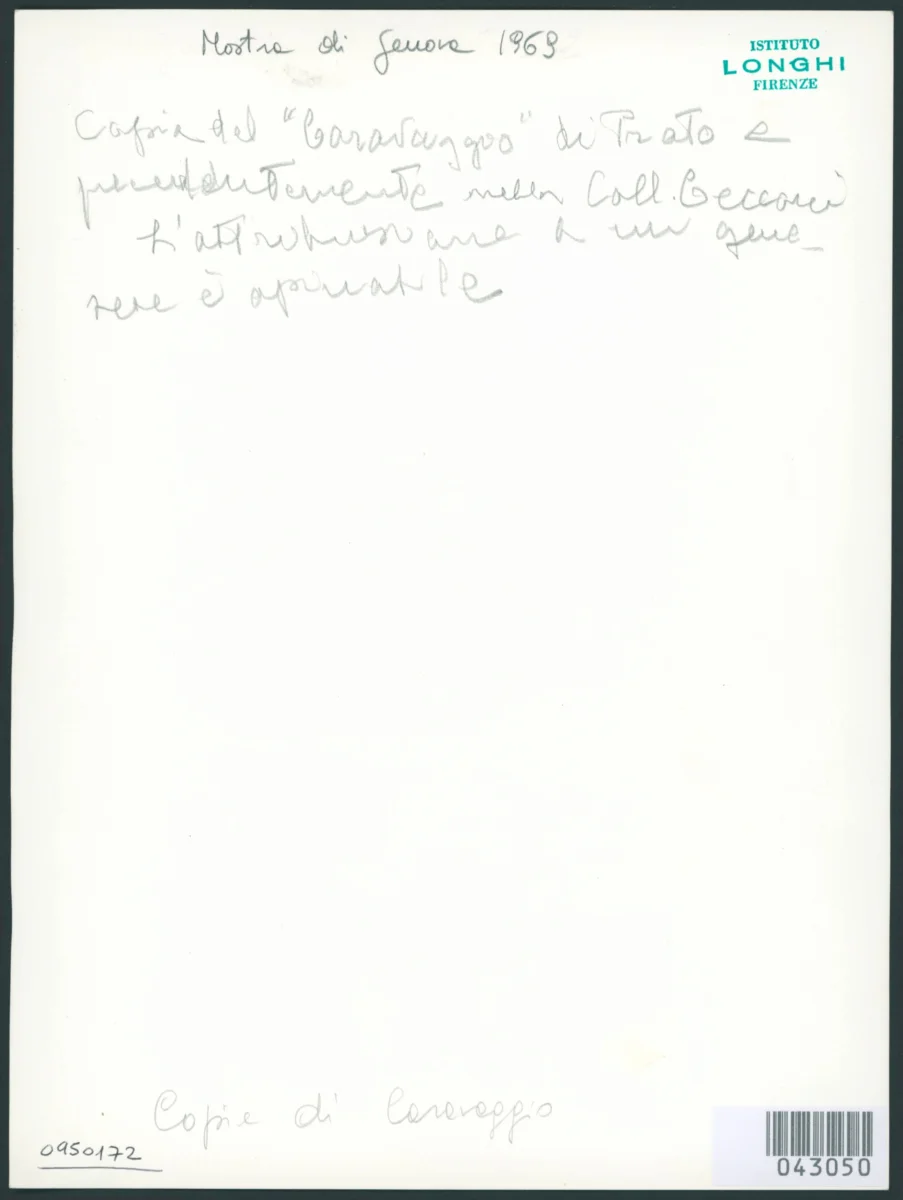 Mostra di Genova 1969
ISTITUTO
LONGHI
FIRENZE
Copia del "Caravaggio" di Prato e
precedentemente nella Coll. Cecconi
L'attribuzione a un geno-
vese è opinabile
Copia di Caravaggio
0950172
043050